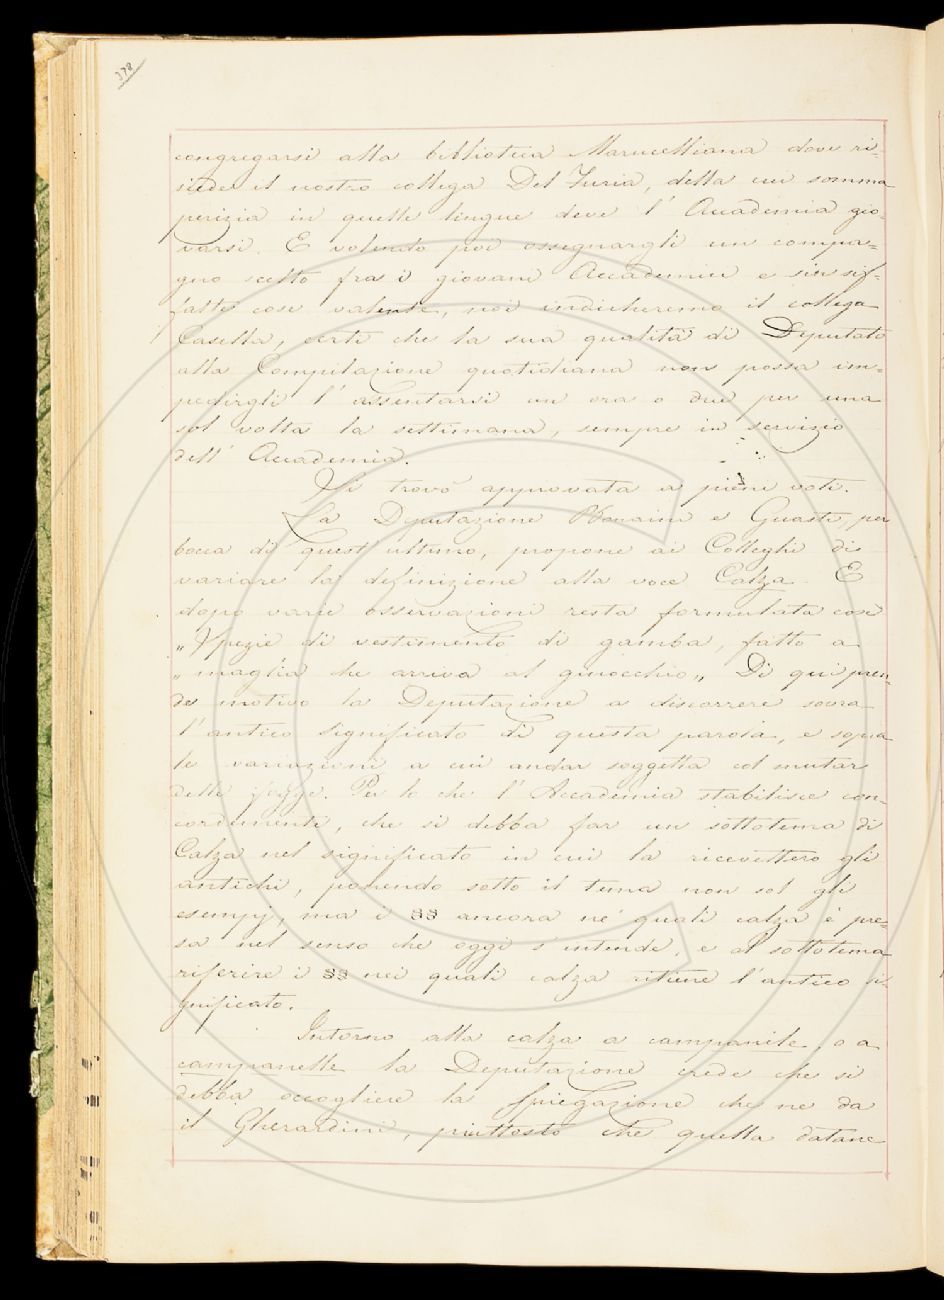 378
congregarsi alla biblioteca Marucelliana dove ri=
siede il nostro collega Del Furia, della cui somma
perizia in quelle lingue deve l' Accademia gio=
varsi. E volendo poi assegnargli un compa=
gno scelto fra i giovani Accademici e in sif=
fatte cose valente, noi indicheremo il collega
Casella, certi che la sua qualità di Deputato
alla Compilazione quotidiana non possa im=
pedirgli l' assentarsi un ora o due per una
sol volta la settimana, sempre in servizio
dell' Accademia.
Si trovò approvata a pieni voti.
La Deputazione Bonaini e Guasti, per
bocca di quest' ultimo, propone ai Colleghi di
variare la definizione alla voce Calza. E
dopo varie osservazioni resta formulata così
„ Spezie di vestimento di gamba, fatto a
„ maglia che arriva al ginocchio „ Di qui pren=
de motivo la Deputazione a discorrere sovra
l' antico significato di questa parola, e sopra
le variazioni a cui andar soggetta col mutar
delle fogge. Per lo che l' Accademia stabilisce con=
cordemente, che si debba far un sottotema di
Calza nel significato in cui la ricevettero gli
antichi, ponendo sotto il tema non sol gli
esempj, ma i §§ ancora ne' quali calza è pre=
sa nel senso che oggi s' intende, e al sottotema
riferire i §§ nei quali calza ritiene l' antico si=
gnificato.
Intorno alla calza a campanile, o a
campanelle la Deputazione crede che si
debba accogliere la spiegazione che ne da
il Gherardini, piuttosto che quella datane